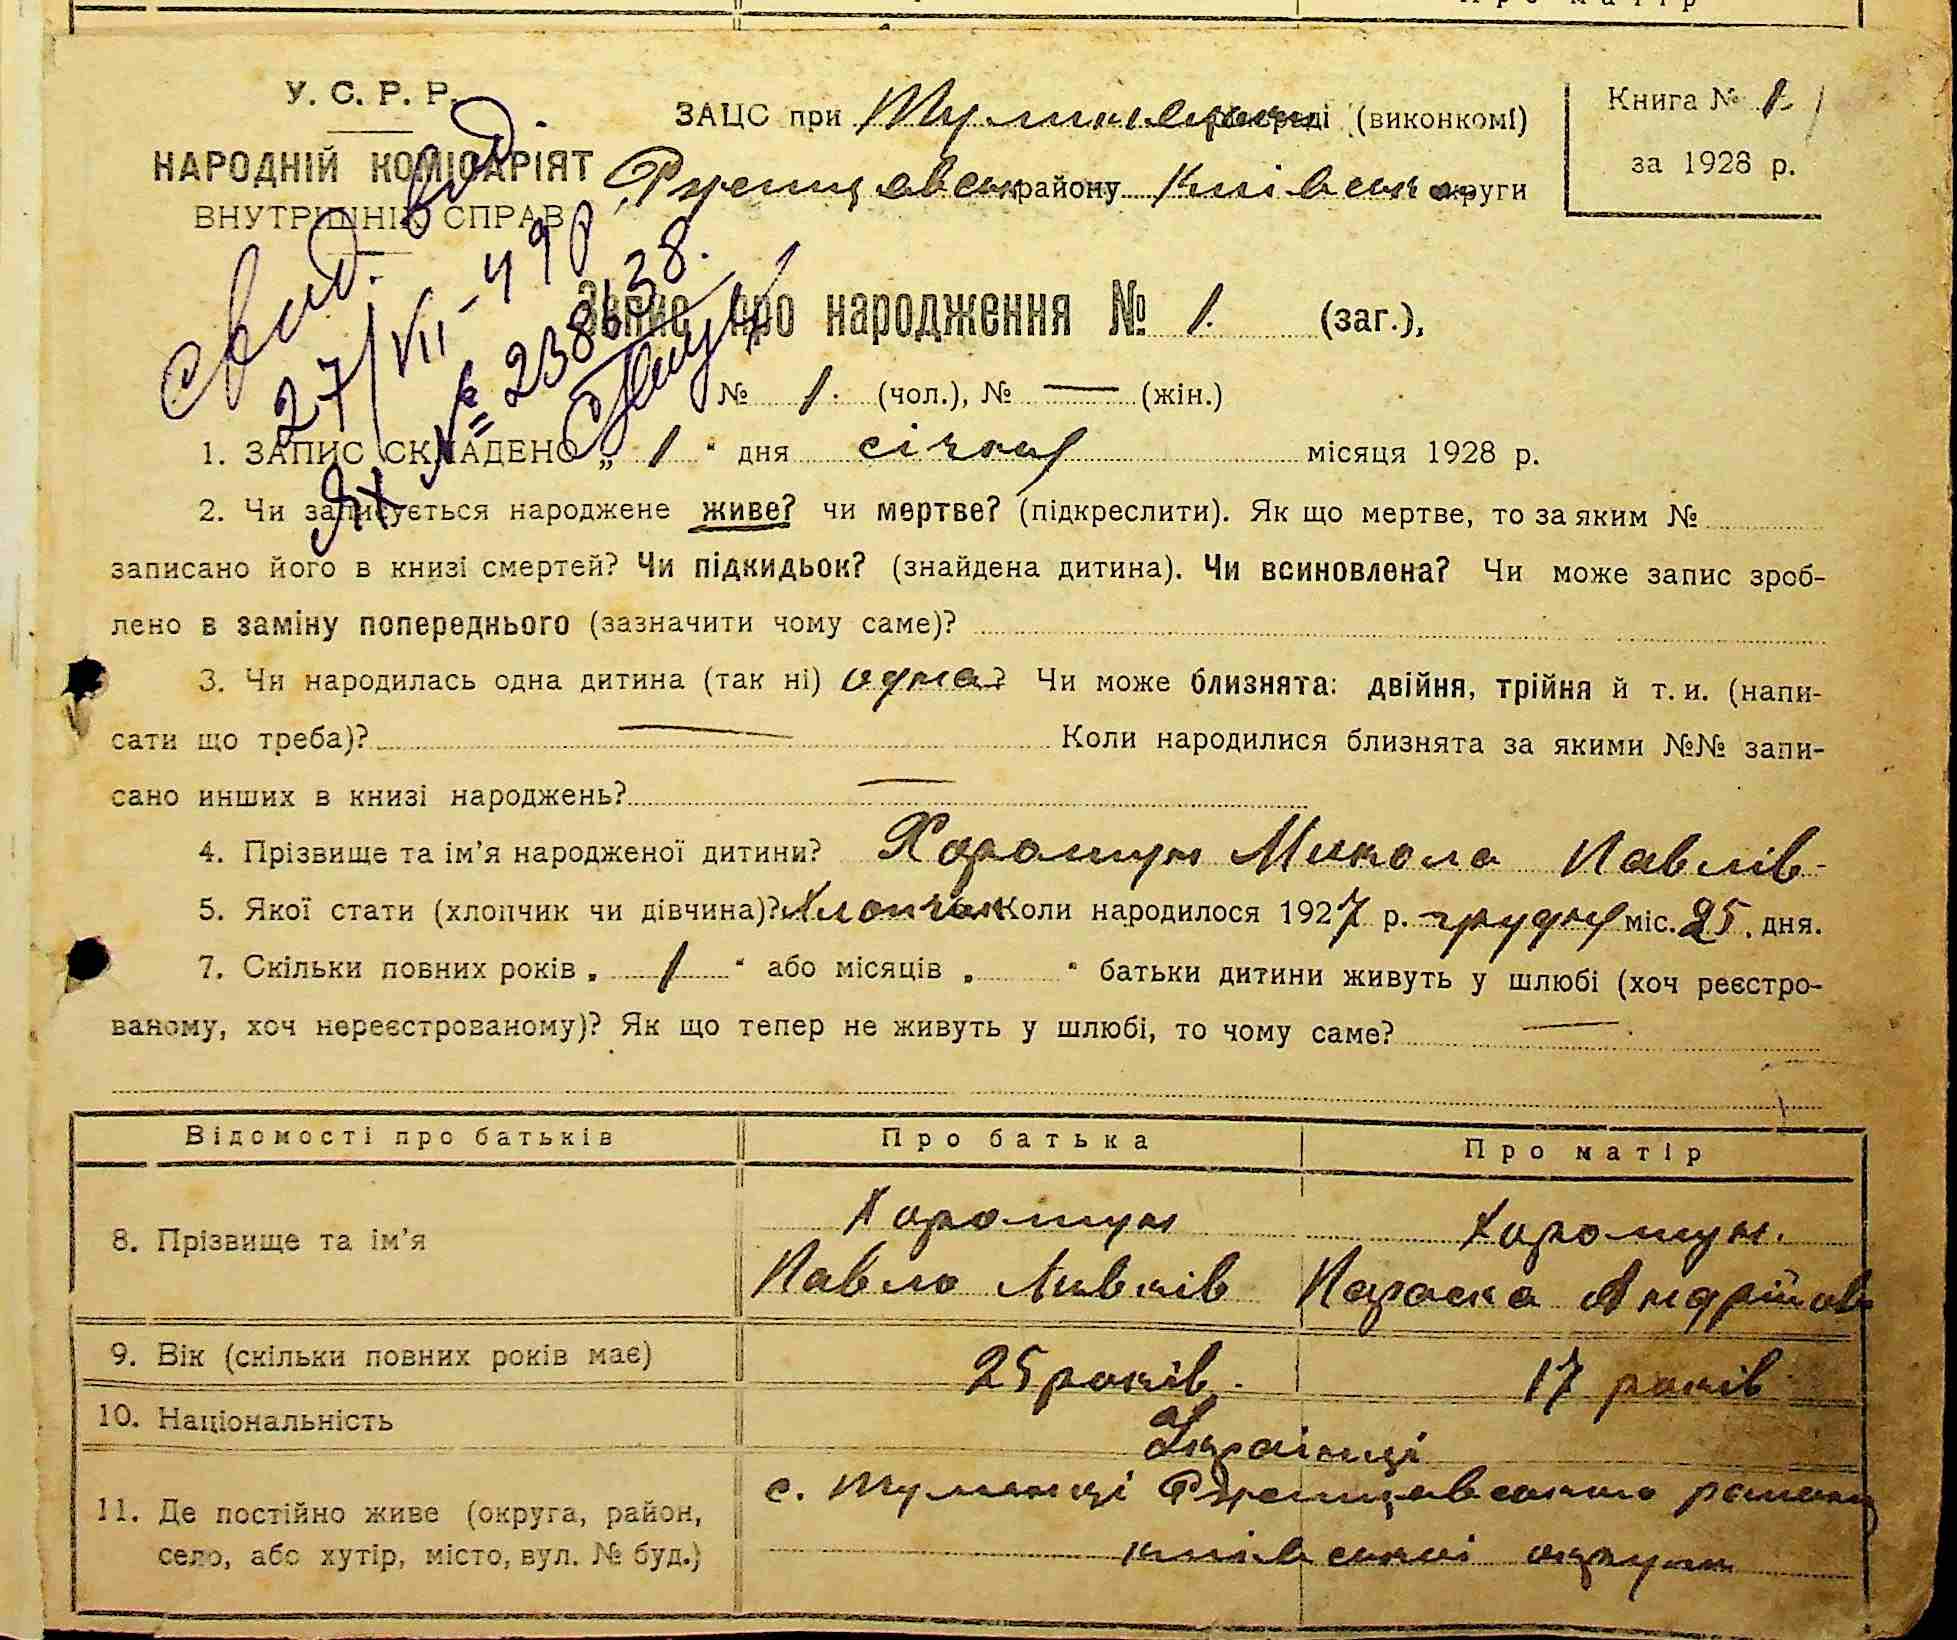 Про матір
У. С. Р. Р.
НАРОДНІЙ КОМІСАРІЯТ
ВНУТРІШНІХ СПРАВ
ЗАЦС при сільраді (виконкомі)
Ржищевськ району Київсько округи
Книга № 1
за 1928 р.
Свид. выд.
27/VII-49 р
№ 238638.
Запис про народження № 1. (заг.),
№ 1. (чол.), № — (жін.)
1. ЗАПИС СКЛАДЕНО „ 1 “ дня січня місяця 1928 р.
2. Чи записується народжене живе? чи мертве? (підкреслити). Як що мертве, то за яким №
записано його в книзі смертей? Чи підкидьок? (знайдена дитина). Чи всиновлена? Чи може запис зроб-
лено в заміну попереднього (зазначити чому саме)?
3. Чи народилась одна дитина (так ні) одна? Чи може близнята: двійня, трійня й т. и. (напи-
сати що треба)? — Коли народилися близнята за якими №№ запи-
сано инших в книзі народжень? —
4. Прізвище та ім’я народженої дитини? Хоромун Микола Павлів
5. Якої стати (хлопчик чи дівчина)? Хлопчик Коли народилося 1927 р. грудня міс. 25. дня.
7. Скільки повних років „ 1 “ або місяців „ “ батьки дитини живуть у шлюбі (хоч реєстро-
ваному, хоч нереєстрованому)? Як що тепер не живуть у шлюбі, то чому саме? —
Відомості про батьків Про батька Про матір
8. Прізвище та ім’я
Хоромун Хоромун.
Павло Параска
9. Вік (скільки повних років має) 25 років. 17 років
10. Національність Українці
11. Де постійно живе (округа, район,
село, або хутір, місто, вул. № буд.)
с. Ржищевського району
київської округи